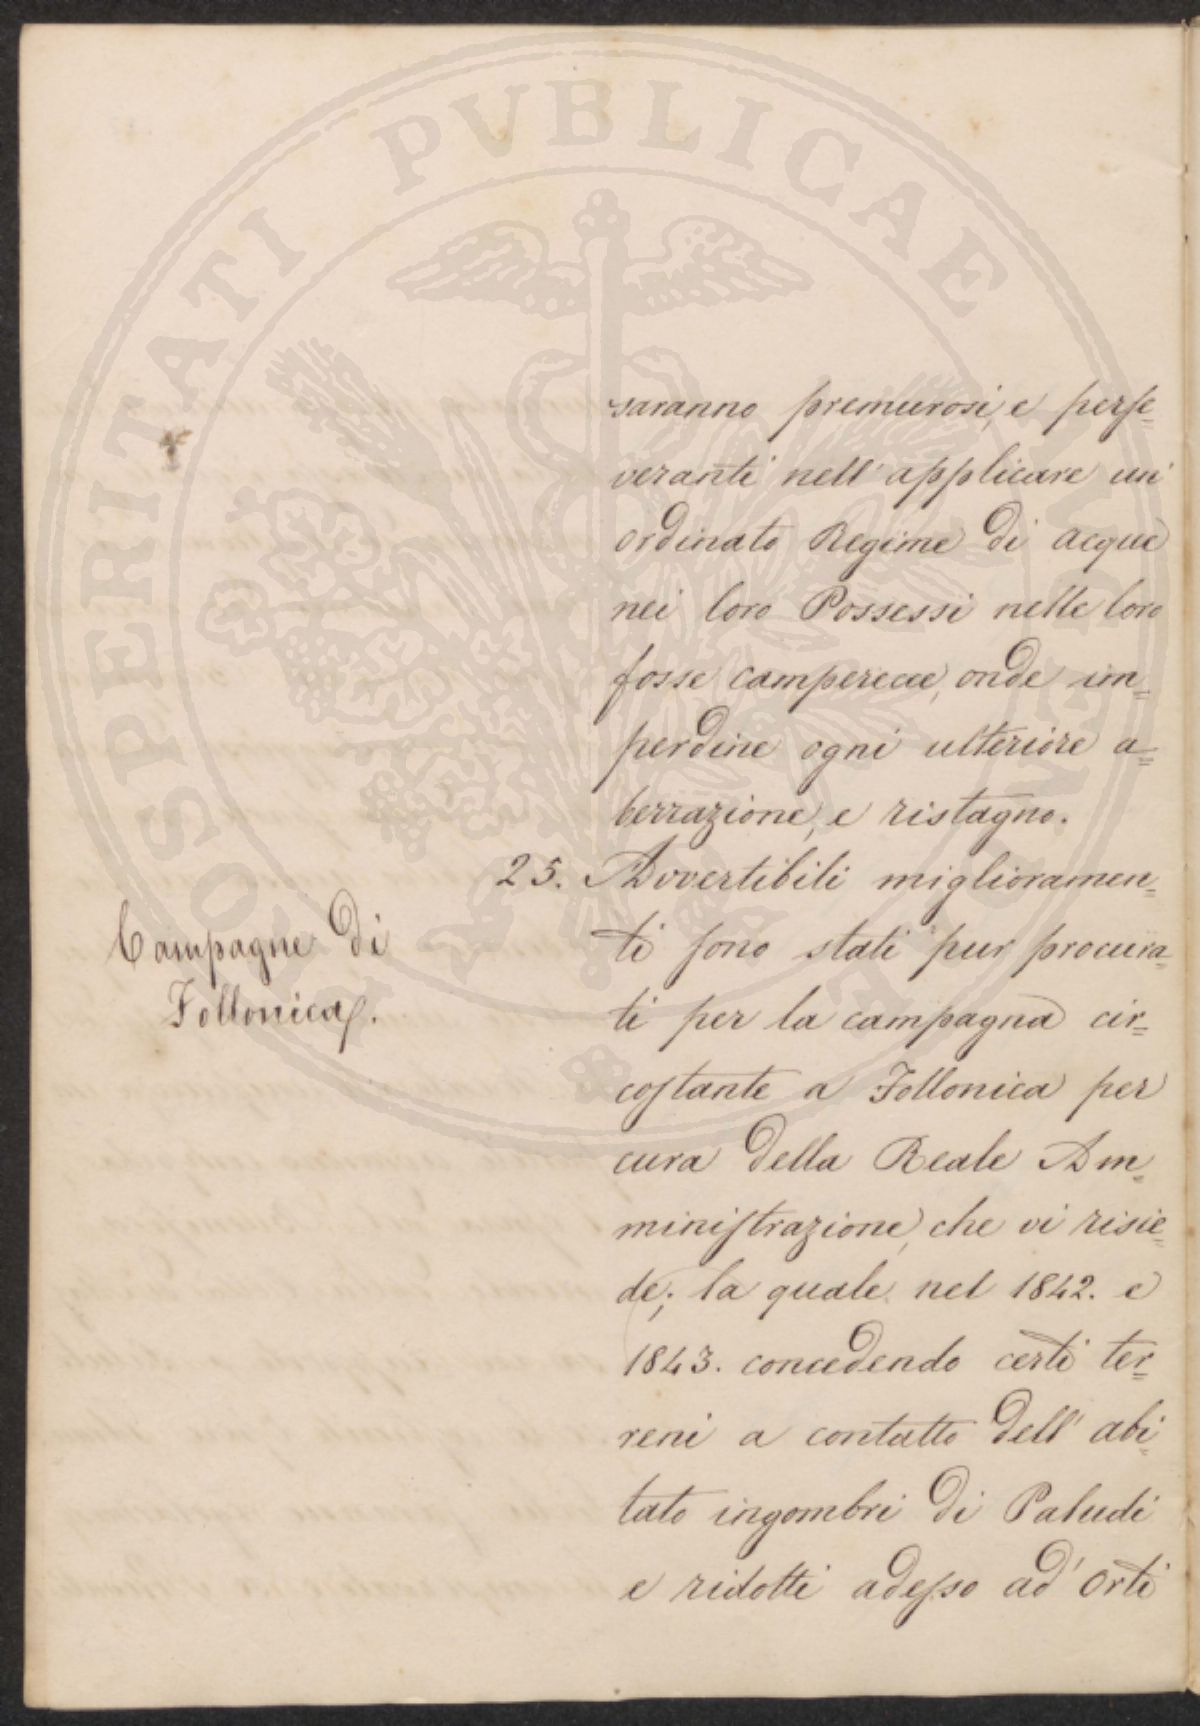 saranno premurosi, e perse-
veranti nell'applicare un'
ordinato Regime di acque
nei loro Possessi nelle loro
fosse camperecce, onde im=
perdine ogni ulteriore a=
berrazione, e ristagno.
25. Avvertibili miglioramen=
Campagne di
Follonica.
ti sono stati pur procura=
ti per la campagna cir=
costante a Follonica per
cura della Reale Am=
ministrazione, che vi risie=
de; la quale nel 1842. e
1843. concedendo certi ter=
reni a contatto dell'abi=
tato ingombri di Paludi
e ridotti adesso ad'Orti
PROSPERITATI PVBLICAE